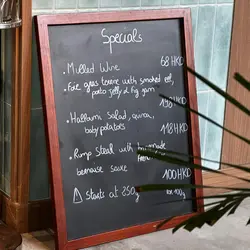 Specials
· Mulled Wine 68 HKD
· Foie gras terrine with smoked eel,
porto jelly & fig jam
198 HKD
· Halloumi Salad, quinoa,
baby potatoes 118 HKD
· Rump Steak with homemade
bernaise sauce 100 HKD
⚠ starts at 250g for 100g